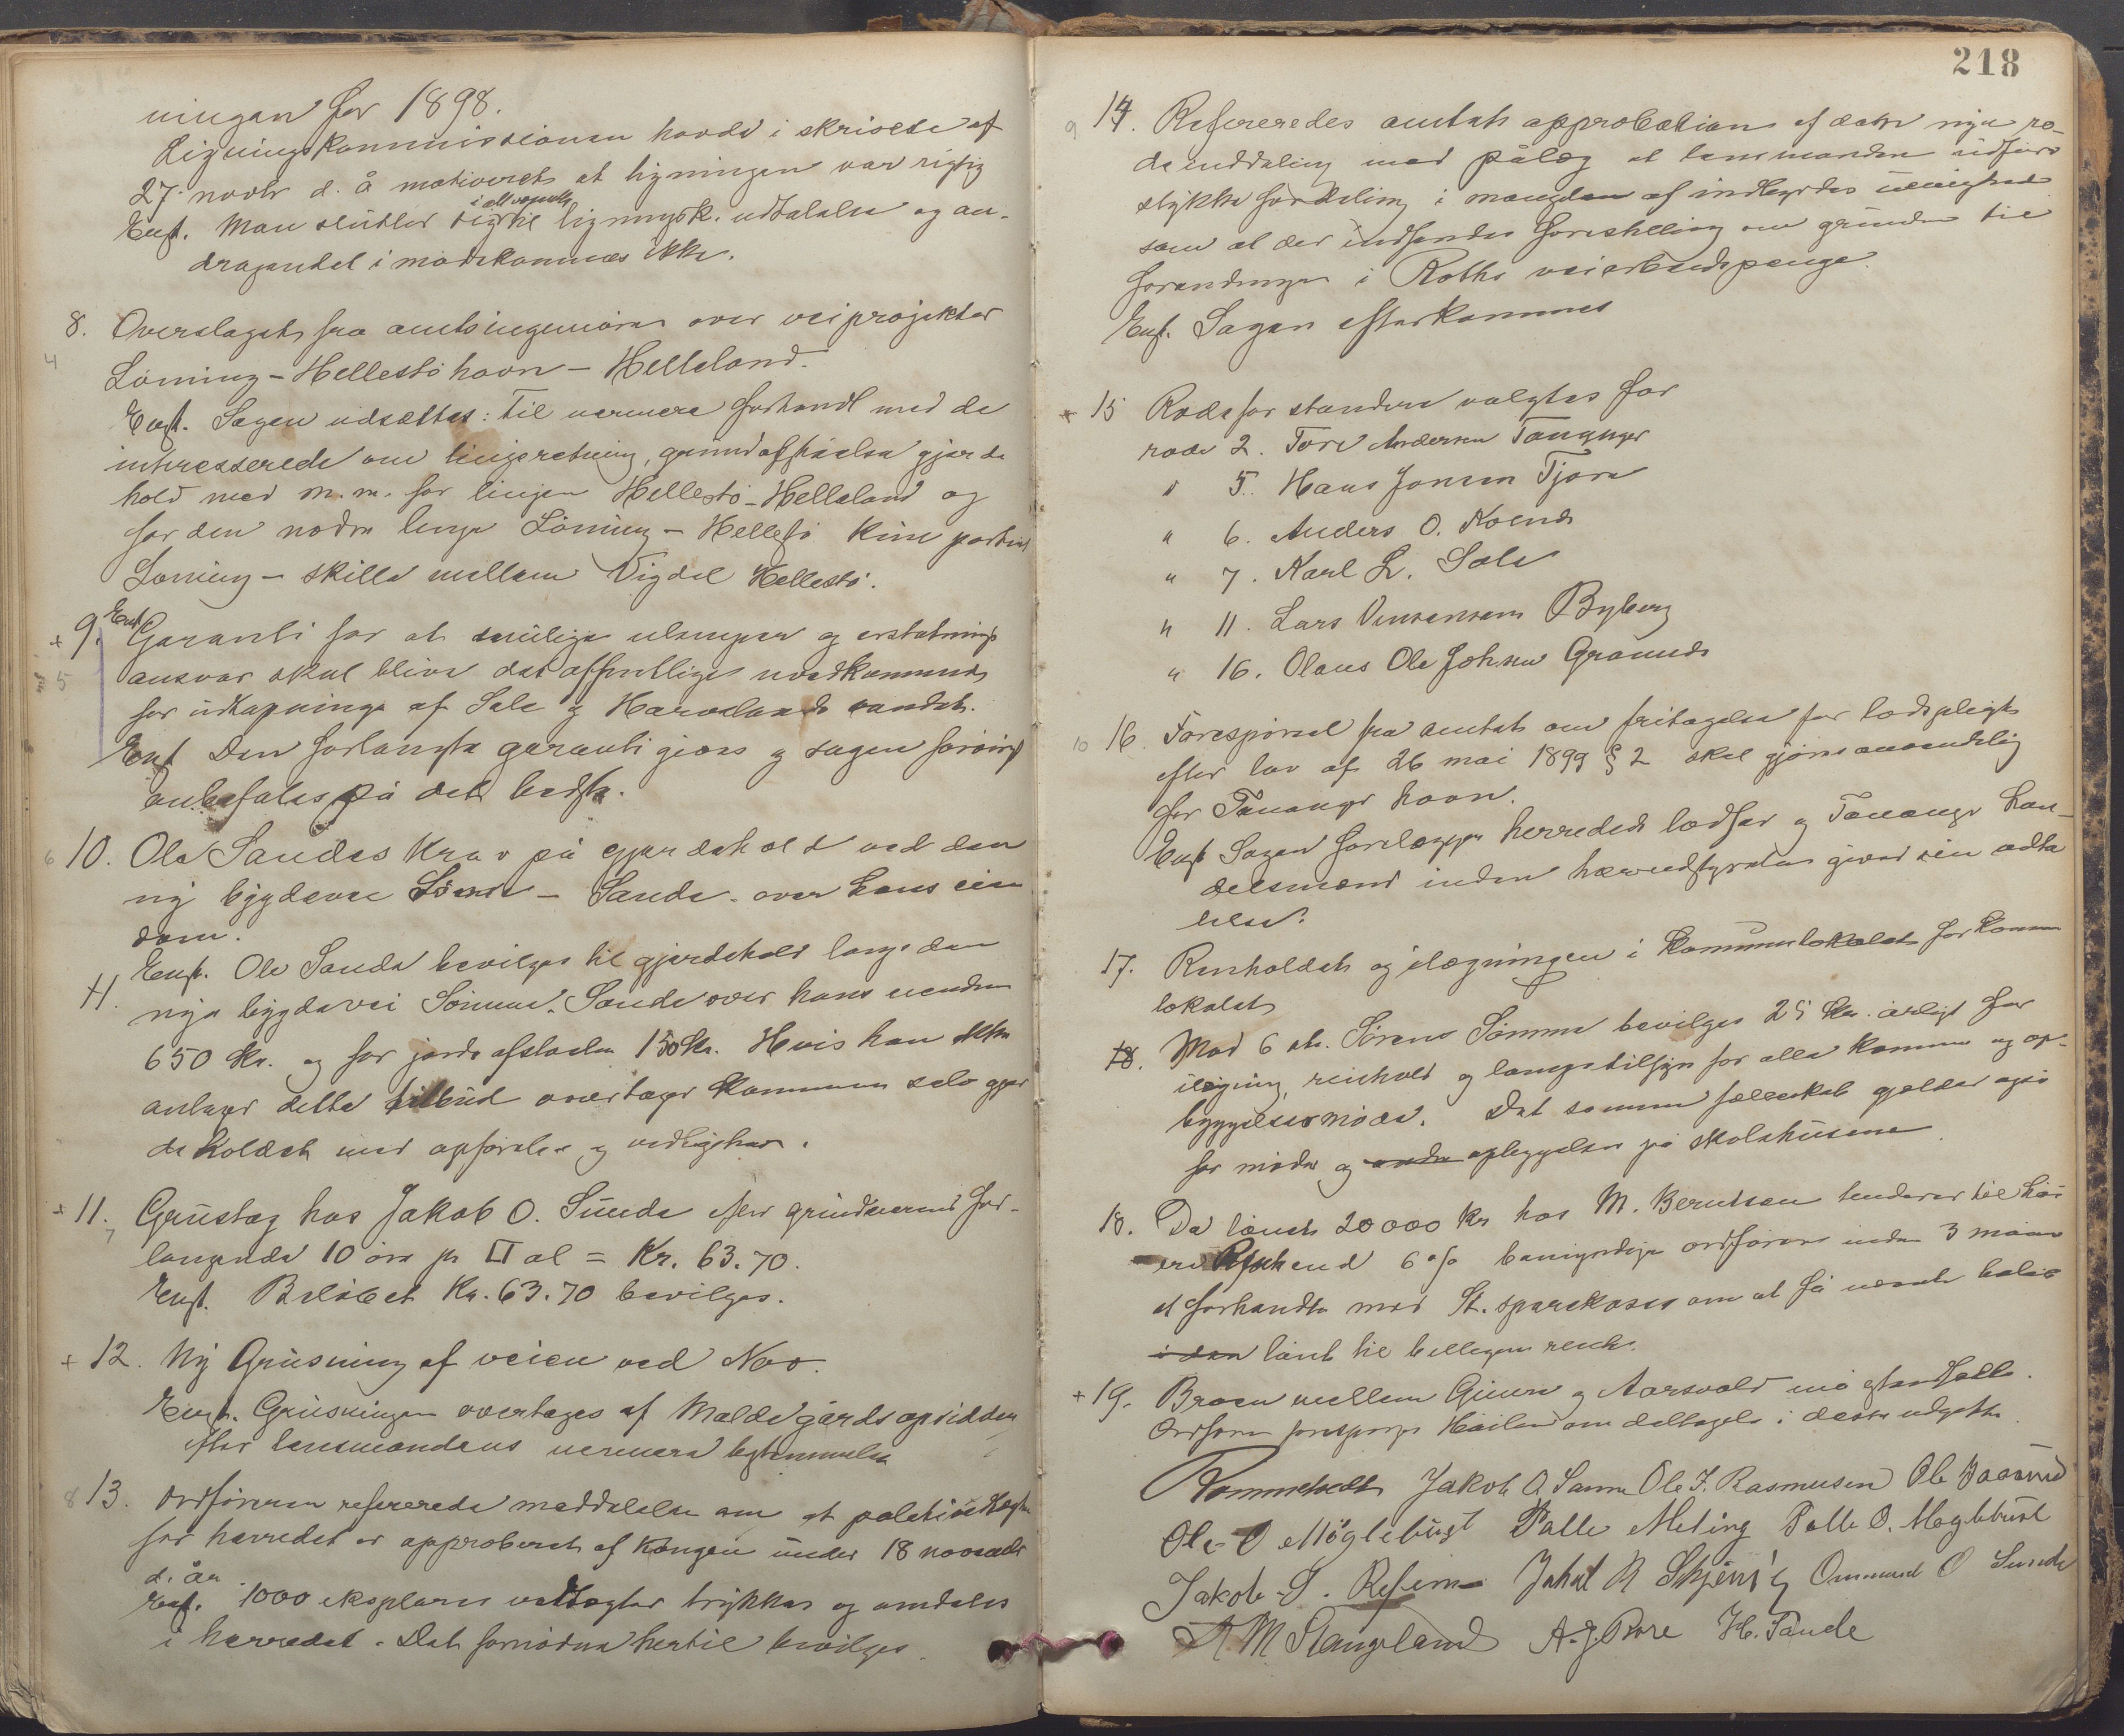 ningen for 1898.
Ligningskommissionen havde i skrivelse af
27 novbr d. å motiveret at ligningen var rigtig
Enst. Man slutter sig i alt væsentl. til ligningsk. udtalelse og an-
dragendet imødekommes ikke.
8. Overslaget fra amtsingeniøren over veiprojekter
4
Löining - Hellestö havn - Helleland.
Enst. Sagen udsættes: til nærmere forhandl med de
interesserede om linjeretning, grundafståelse gjerde
hold med m.m. for linjen Hellestö - Helleland og
for den nedre linje Löining - Hellestö kun partiet
Löning - skille mellem Vigdel Hellestö.
+ 9. Enst Garanti for at mulige ulemper og erstatnings
5 ansvar skal blive det offentlige uvedkommende
for udtapninge af Sele og Harvelands vandet.
Enst Den forlangte garanti gives og sagen forövrigt
anbefales på det bedste.
6 10. Ole Sandes krav på gjerdehold ved den
ny bygdevei Sömme - Sande over hans eien
dom.
Enst. Ole Sande bevilges til gjerdehold langs den
11. nye bygdevei Sömme - Sande over hans eiendom
650 Kr. og for jordafståelse 150 Kr. Hvis han ikke
antager dette tilbud overtager Kommunen selv gjer
deholdet med opförelse og vedligehold.
+ 11. Grustag hos Jakob O. Sunde efter grundeierens for-
7
langende 10 øre pr □ al = Kr. 63.70.
Enst. Belöbet Kr. 63.70 bevilges.
+ 12. Ny Grusning af veien ved Nov.
Enst. Grusningen overtages af Malde gårds opsiddere
efter lensmandens nærmere bestemmelse
8 13. Ordföreren refererede meddelelse om at politivedtægter
for herredet er approberet af Kongen under 18 novembr
d. år.
Enst. 1000 eksplarer vedtægter trykkes og omdeles
i herredet. Det fornödne hertil bevilges.
218
9 14. Refereredes amtets approbation af den nye ro-
deinddeling med pålæg at lensmanden udförer
stykke fordeling i mangden af indbyrdes uenighed
samt at der indsendes forestilling om grunden til
forandringen i Rotts veiarbeidspenge.
Enst. Sagen efterkommes
+ 15 Rodeforstandere valgtes for
rode 2. Tore Andersen Tananger
" 5. Hans Jonsen Tjora
" 6. Anders O. Kolnes
" 7. Karl L. Sole
" 11. Lars Vinsensen Byberg
" 16. Olaus Ole Johsen Grannes
10 16. Forespörsel fra amtet om fritagelse for lodspligt
efter lov af 26 mai 1899 § 2 skal gjöres anvendelig
for Tananger havn.
Enst Sagen forelægges herredets lodser og Tananger han-
delsmænd inden herredstyrelsen giver sin udta
lelse.
17. Renholdet og ilægningen i Kommunelokalet for komm
lokalet
18. Mod 6 st. Sörens Sömme bevilges 25 kr. årligt for
ilægning, renhold og lampetilsyn for alle komm og op-
byggelsesmöder. Det samme fælleskab gjelder også
for möder og andre opbyggelser på skolehusene.
18. Da lånet 20000 Kr hos M. Berntsen tenderer til höi
ere Rente end 6 % bemyndiges ordföreren inden 3 måneder
at forhandle med St. sparekasse om at få nævnte beløb
i den lånt til billigere rente.
+ 19. Broen mellem Gimre og Aarsvold må istandsættes.
Ordförer forespörger Håland om deltagelse i dette udgifte
Rommetvedt Jakob A Sømme Ole J. Rasmusen Ole Jaasund
Ole O Möglebust Palle Meling Palle O. Möglebust
Jakob S. Risnes Jakob N Skjæveland Ommund O Sunde
A M Stangeland A. J. Rore H. Sande